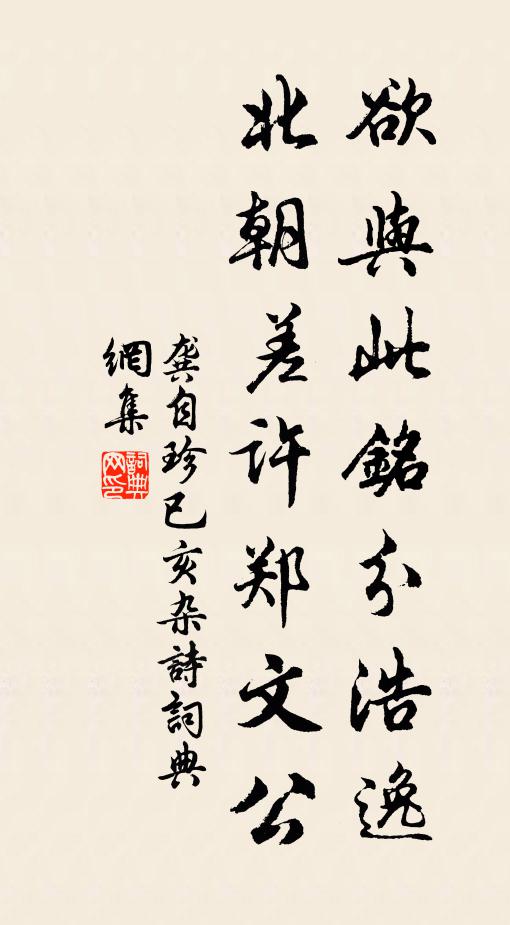 欲與此銘分浩逸
北朝差許郑文公
龚自珍己亥杂詩詞典
網集
詞典
网印